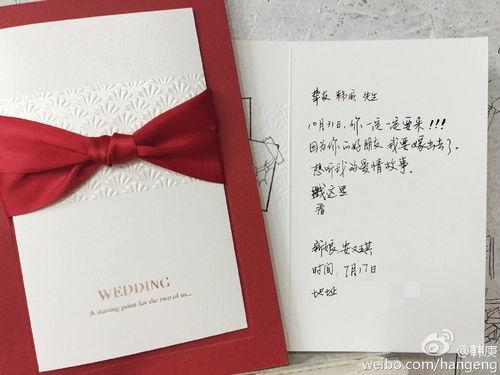 WEDDING
A starting point for the two of us...
挚友 韩庚 先生
10月31日,你一定一定要来!!!
因为你的好朋友 我要嫁出去了.
想听我的爱情故事.
戳这里
看
新娘:安又琪
时间:7月17日
地址
@韩庚
weibo.com/hangeng